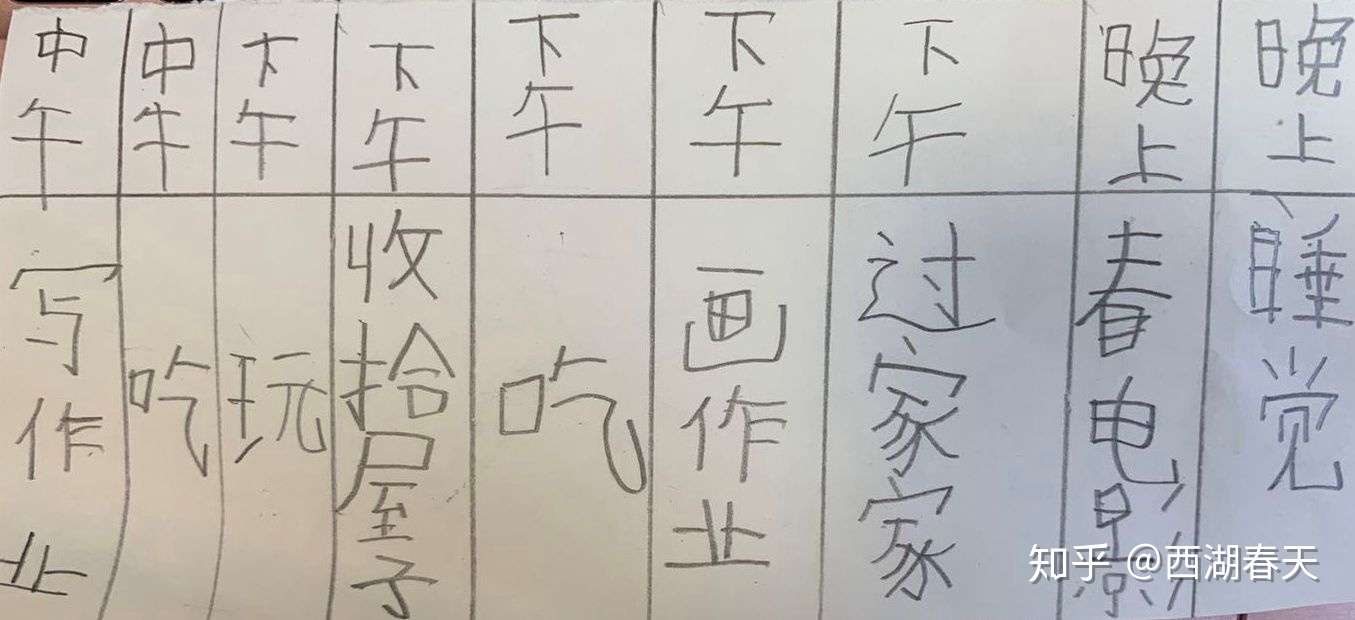 中午
写作业
中牛
吃
下午
玩
下午
收拾屋子
下午
吃
下午
画作业
下午
过家家
晚上
春电影
晚上
睡觉
知乎 @西湖春天